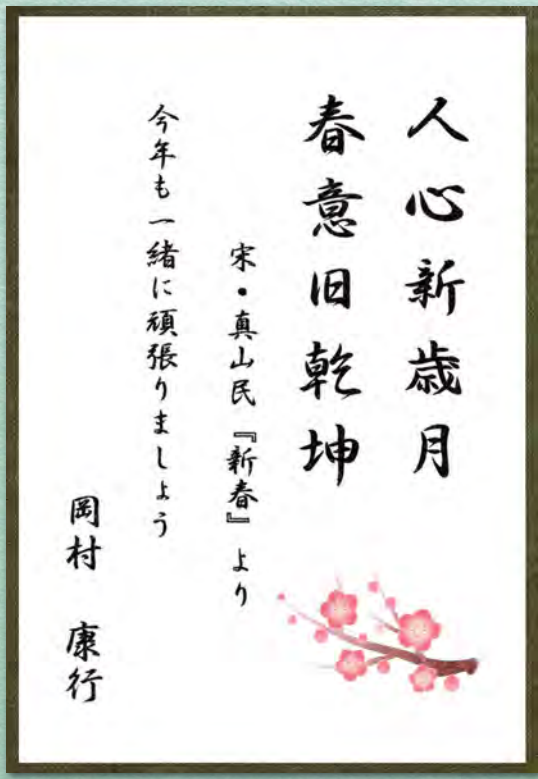 人心新歳月
春意旧乾坤
宋・真山民『新春』より
今年も一緒に頑張りましょう
岡村　康行